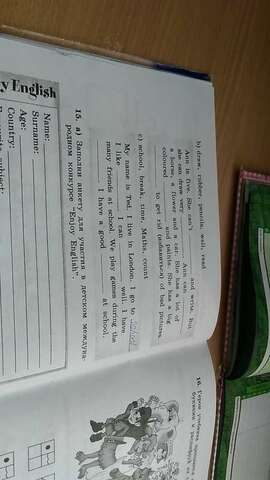 b) draw, rubber, pencils, well, read
Ann is five. She can't ____ and write. But
she can draw very ____. Ann can ____
a horse, a flower and a cat. She has a lot of
coloured ____ and paints. She has a big
____ to get rid (избавиться) of bad pictures.
c) school, break, time, Maths, count
My name is Ted. I live in London. I go to school.
I like ____. I can ____ well. I have
many friends at school. We play games during the
____. I have a good ____ at school.
15. а) Заполни анкету для участия в детском междуна-
родном конкурсе "Enjoy English".
English
Name:
Surname:
Age:
Country:
subject:
16. Герои учебника